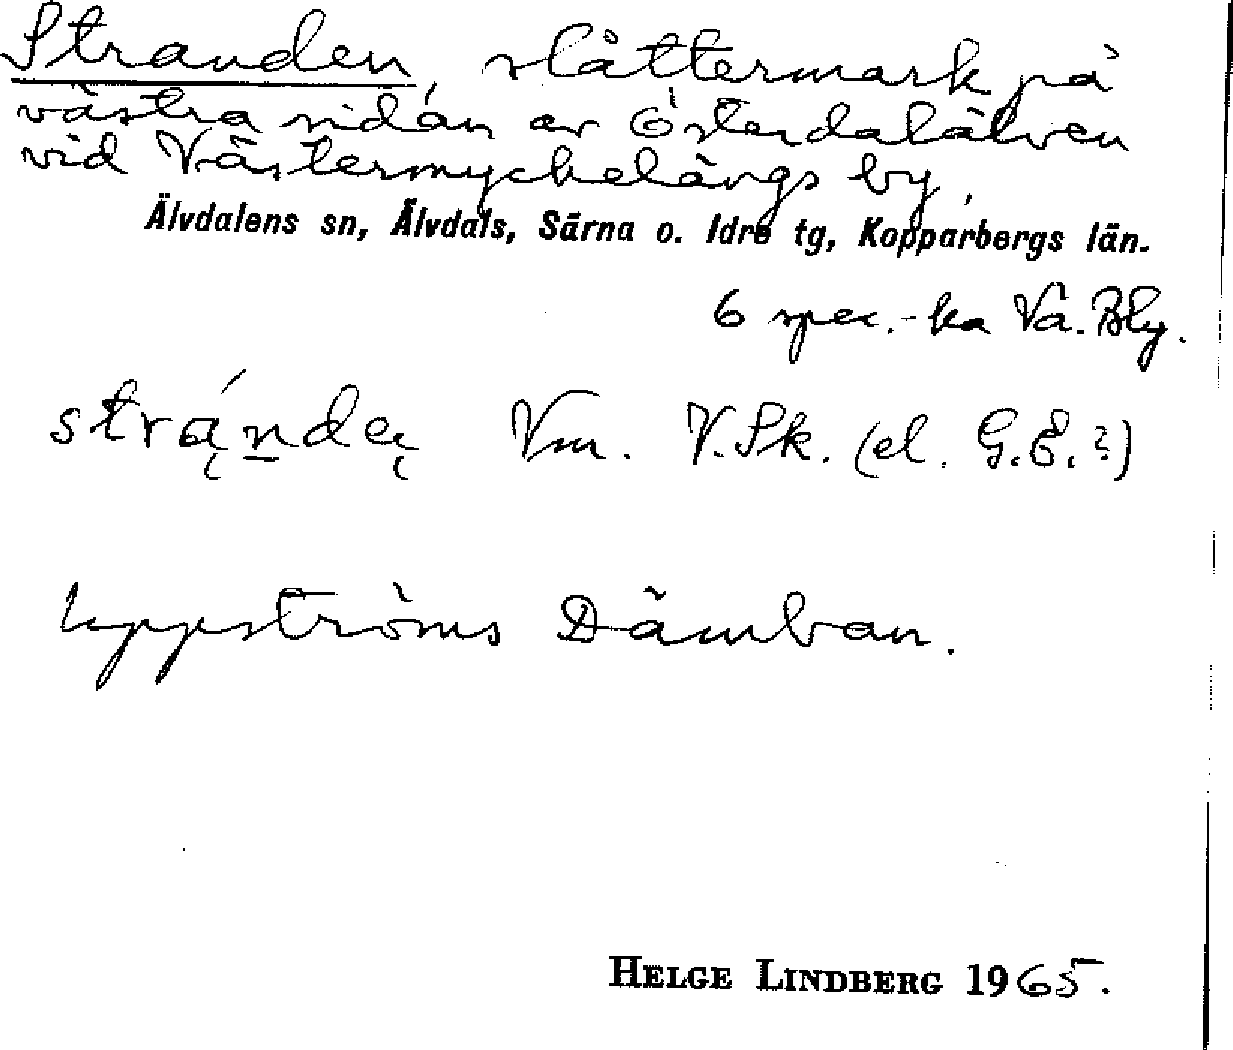 Stranden, slåttermark på
västra sidan av Österdalälven
vid Västermyckelängs by,
Älvdalens sn, Älvdals, Särna o. Idre tg, Kopparbergs län.
6 spec.-ka Vä. Bly.
strą́nde̜ Vm. V.Sk. (el. G.E.?)
uppströms Dämban.
HELGE LINDBERG 1965.